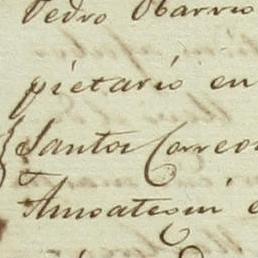 Pedro Obarrio
pietario en
Santos Correo
Amoategui